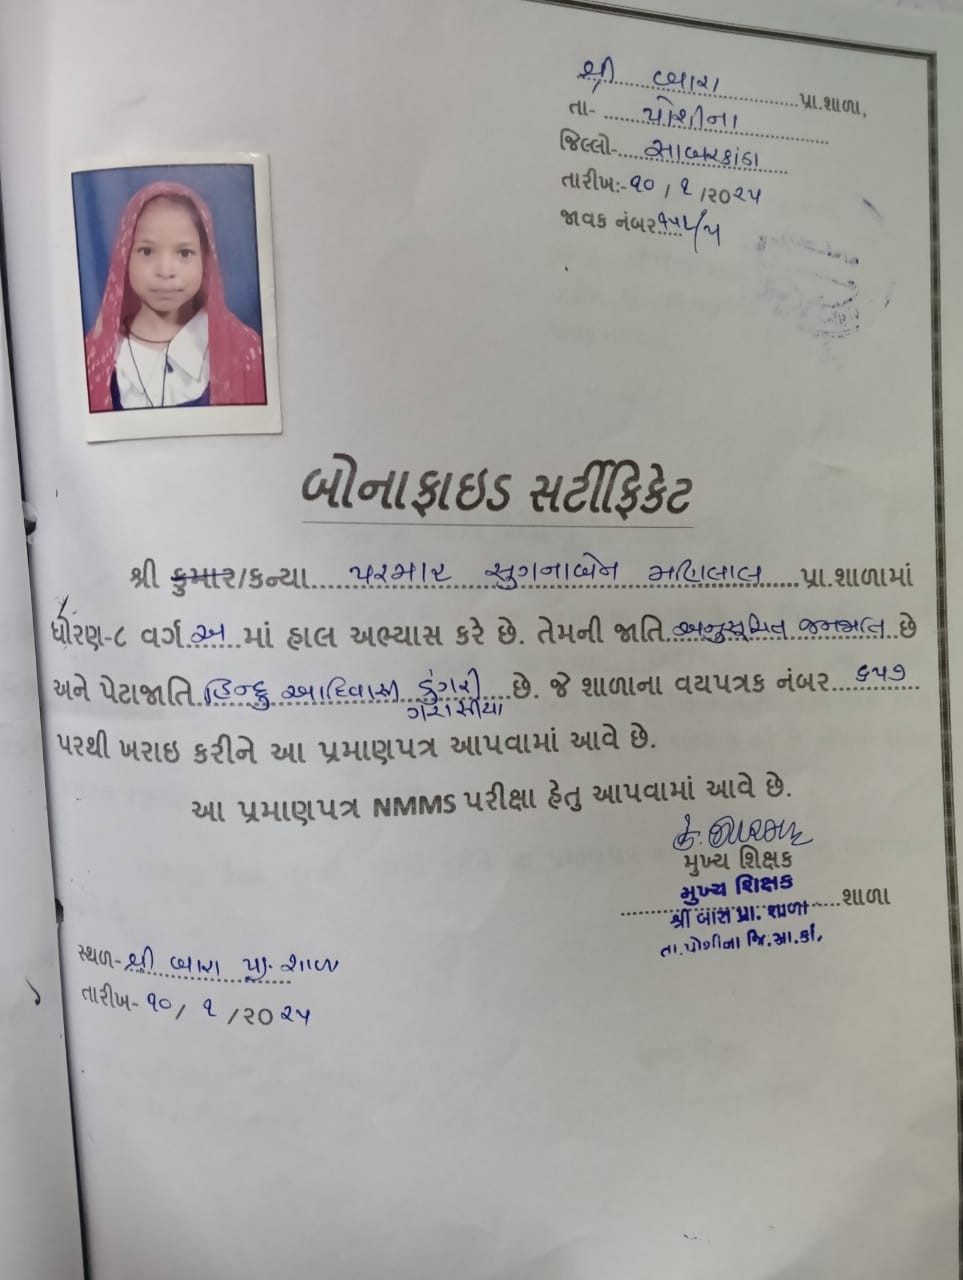 શ્રી બારા પ્રા.શાળા,
તા- પોશીના
જિલ્લો- સાબરકાંઠા
તારીખ:- ૧૦/૧/૨૦૨૫
જાવક નંબર
બોનાફાઇડ સર્ટીફિકેટ
શ્રી કુમાર/કન્યા પરમાર સુગનાબેન મણિલાલ પ્રા.શાળામાં
ધોરણ-૮ વર્ગ અ માં હાલ અભ્યાસ કરે છે. તેમની જાતિ અનુસૂચિત જનજાતિ છે
અને પેટાજાતિ હિન્દુ આદિવાસી ડુંગરી છે. જે શાળાના વયપત્રક નંબર ૬૫૭
ગરાસીયા
પરથી ખરાઇ કરીને આ પ્રમાણપત્ર આપવામાં આવે છે.
આ પ્રમાણપત્ર NMMS પરીક્ષા હેતુ આપવામાં આવે છે.
મુખ્ય શિક્ષક
મુખ્ય શિક્ષક
શાળા
શ્રી બારા પ્રા. શાળા
તા.પોશીના જિ.સા.કાં.
સ્થળ- શ્રી બારા પ્રા. શાળા
તારીખ- ૧૦/૧/૨૦૨૫